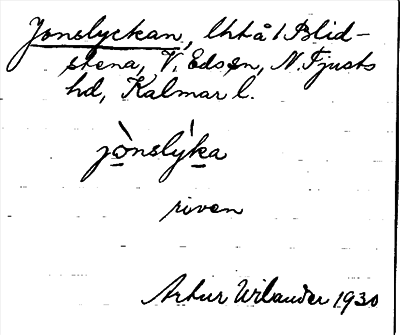 Jonslyckan, lht å 1 Blid-
stena, V. Edsön, N. Tjusts
hd, Kalmar l.
jònslý̀ka
riven
Artur Wilander 1930